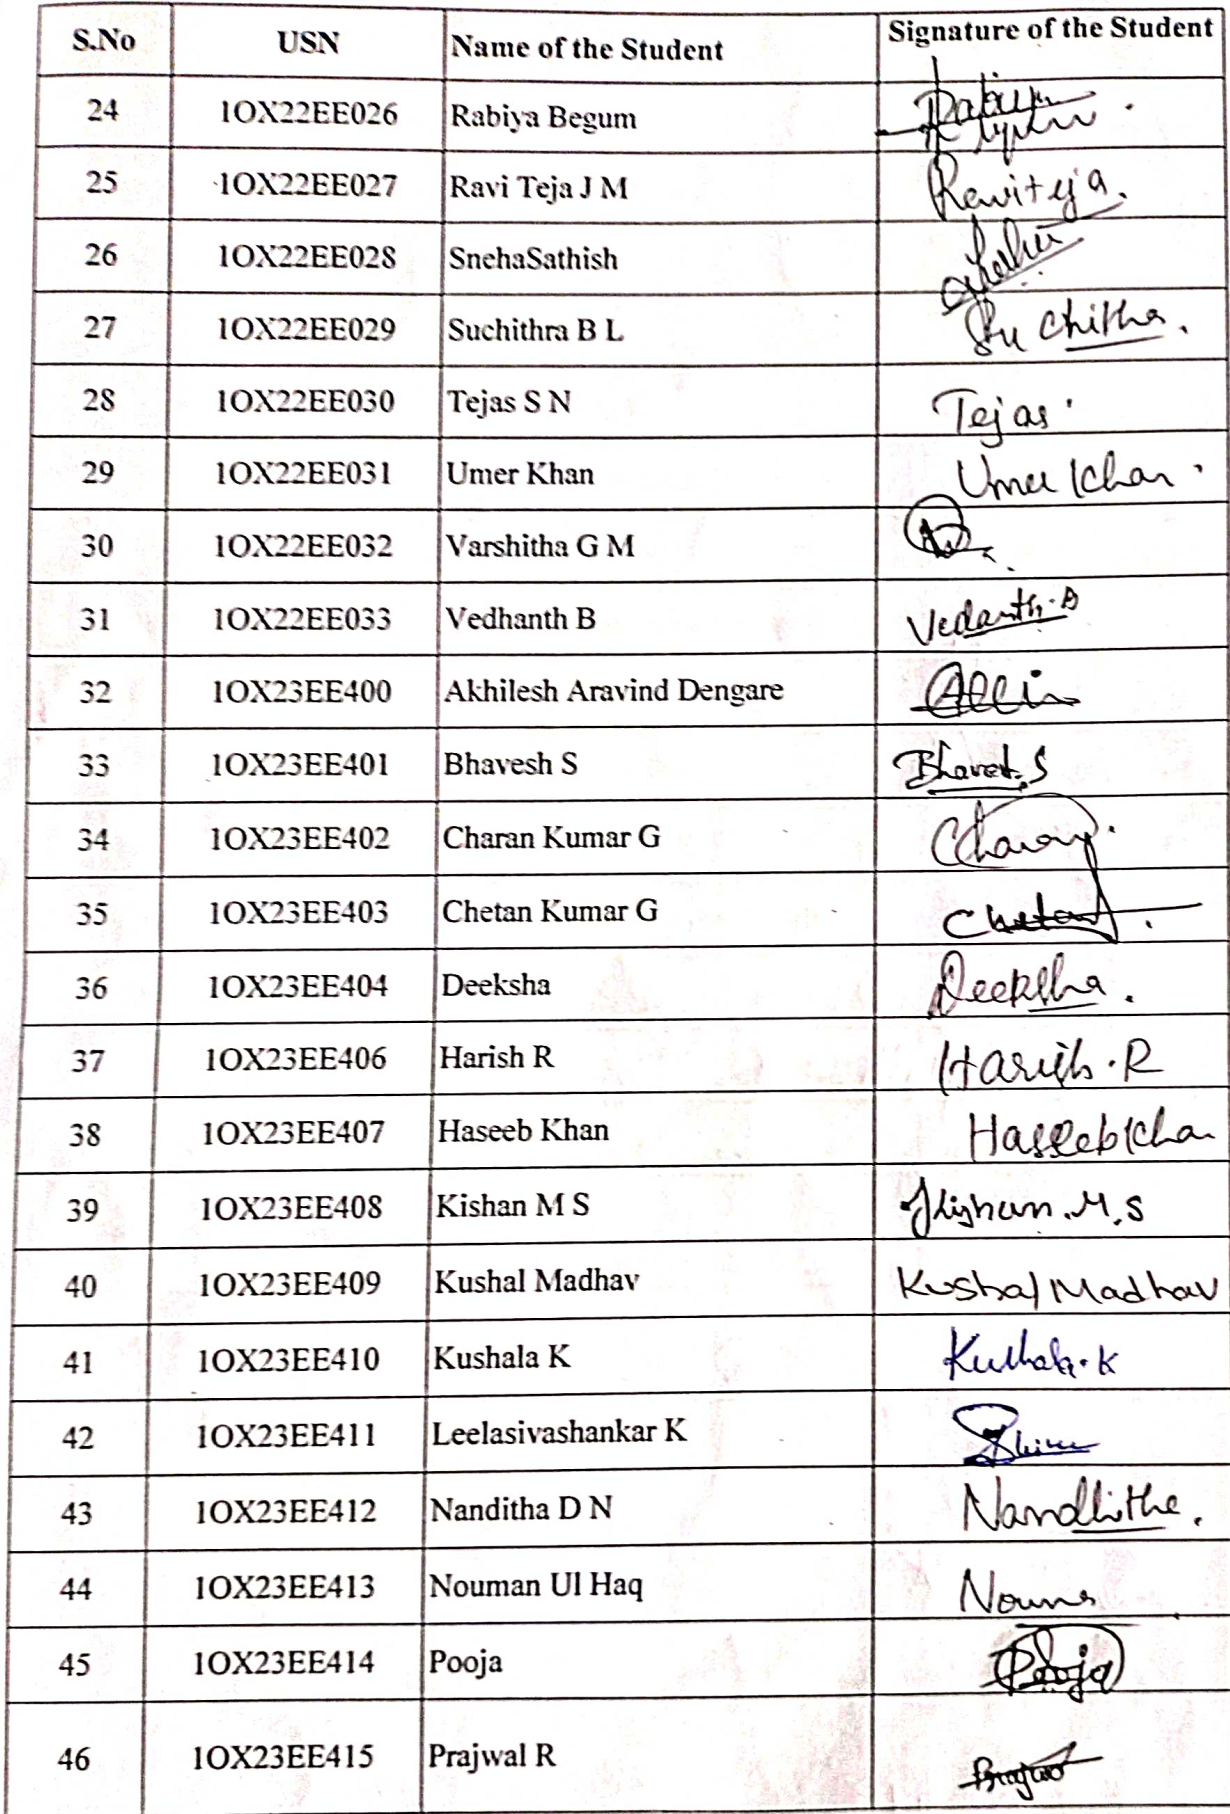 S.No USN Name of the Student Signature of the Student
24 1OX22EE026 Rabiya Begum
25 1OX22EE027 Ravi Teja J M Raviteja.
26 1OX22EE028 SnehaSathish
27 1OX22EE029 Suchithra B L
28 1OX22EE030 Tejas S N Tejas.
29 1OX22EE031 Umer Khan Umer Khan.
30 1OX22EE032 Varshitha G M
31 1OX22EE033 Vedhanth B Vedanth.B
32 1OX23EE400 Akhilesh Aravind Dengare
33 1OX23EE401 Bhavesh S Bhavesh.S
34 1OX23EE402 Charan Kumar G
35 1OX23EE403 Chetan Kumar G Chetan
36 1OX23EE404 Deeksha Deeksha.
37 1OX23EE406 Harish R Harish.R
38 1OX23EE407 Haseeb Khan Haseeb Kha
39 1OX23EE408 Kishan M S Kishan.M.S
40 1OX23EE409 Kushal Madhav Kushal Madhav
41 1OX23EE410 Kushala K Kushala.K
42 1OX23EE411 Leelasivashankar K
43 1OX23EE412 Nanditha D N Nandhitha.
44 1OX23EE413 Nouman Ul Haq
45 1OX23EE414 Pooja Pooja
46 1OX23EE415 Prajwal R